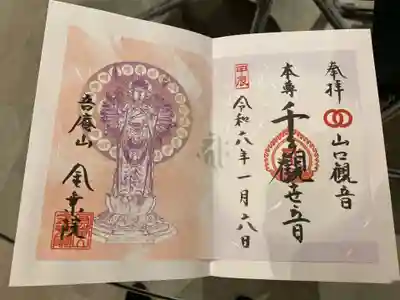 奉拝
山口觀音
本尊
千手觀世音
甲辰
令和六年一月六日
吾庵山
金乗院